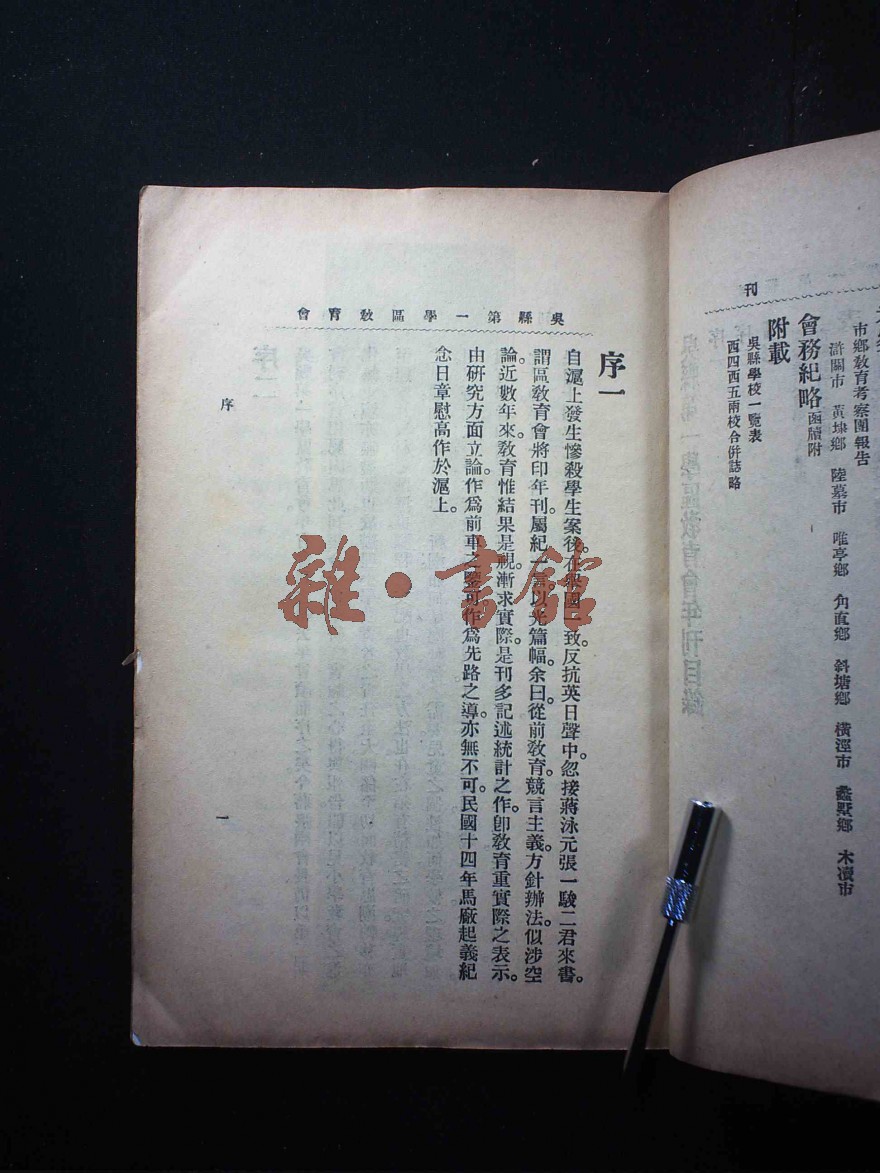 市鄉教育考察團報告
滸關市　黃埭鄉　陸墓市　唯亭鄉　角直鄉　斜塘鄉　橫涇市　蠡墅鄉　木瀆市
會務紀略函牘附
附載
吳縣學校一覽表
西四西五兩校合併誌略
刊
吳縣第一學區教育會
序一
自滬上發生慘殺學生案後。在舉國一致反抗英日聲中。忽接蔣泳元張一駿二君來書。
謂區教育會將印年刊屬紀一言以光篇幅。余曰從前教育競言主義方針辦法似涉空
論。近數年來。教育惟結果是視。漸求實際。是刊多記述統計之作。卽教育重實際之表示。
由研究方面立論。作爲前車之鑒可。作爲先路之導。亦無不可。民國十四年馬廠起義紀
念日章慰高作於滬上。
序
一
雜·書館